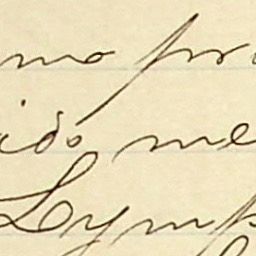 mo pr
ido me
Lymp